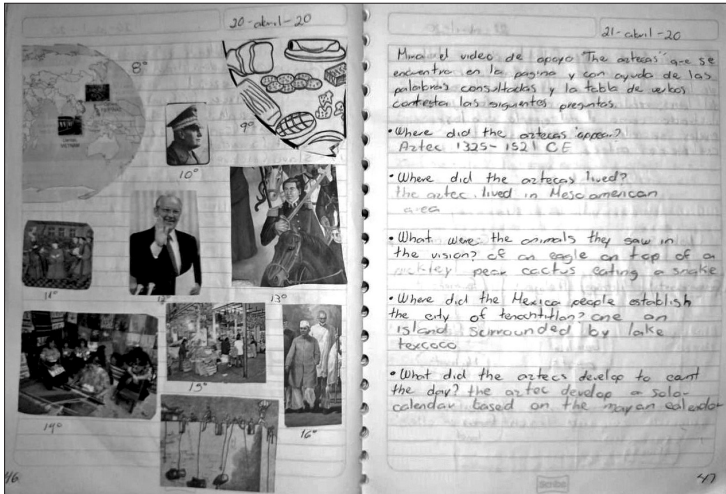 20-abril-20
8°
9°
10°
11°
12°
13°
14°
15°
16°
46
21-abril-20
Mira el video de apoyo "The aztecas" que se
encuentra en la pagina y con ayuda de las
palabras consultadas y la tabla de verbos
contesta las siguientes preguntas.
• Where did the aztecas appear?
Aztec 1325-1521 CE
• Where did the aztecas lived?
the aztec lived in Mesoamerican
area
• What were the animals they saw in
the vision? of an eagle on top of a
pear cactus eating a snake
• Where did the Mexica people establish
the city of tenochtitlan? one an
island surrounded by lake
texcoco
• What did the aztecs develop to count
the day? the aztec develop a solar
calendar based on the mayan calendar
47